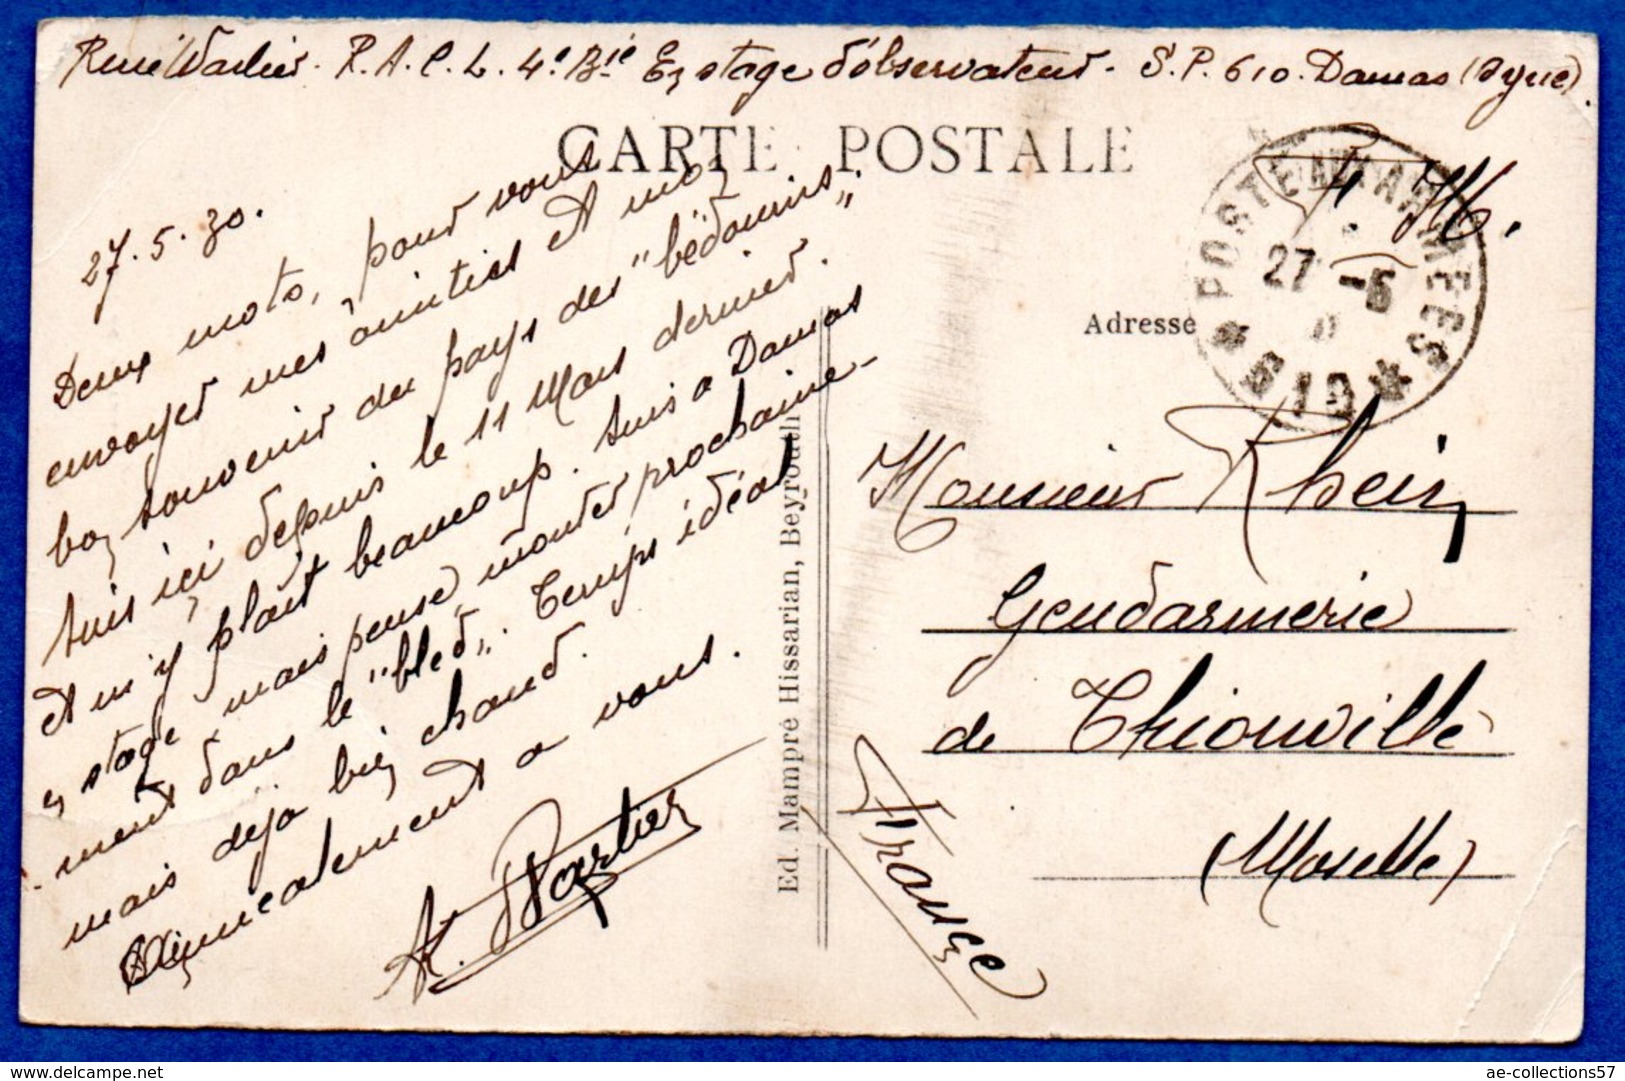 René Warlier. R.A.C.L. 4e Bie En stage d'observateur. S.P. 610. Damas (Syrie).
CARTE POSTALE
27.5.30.
Deux mots, pour vous
envoyer mes amitiés et mon
bon souvenir du pays des "bédouins".
Suis ici depuis le 11 Mars dernier.
et m'y plaît beaucoup. Suis à Damas
en stage, mais pense monter prochaine-
ment dans le "bled". Temps idéal
mais déjà bien chaud.
Amicalement à vous.
Ed. Mampré Hissarian, Beyrouth
POSTE AUX ARMEES
27 -5
* 610 *
F. M.
Adresse
Monsieur Rhein
Gendarmerie
de Thionville
(Moselle)
France
ae-collections57